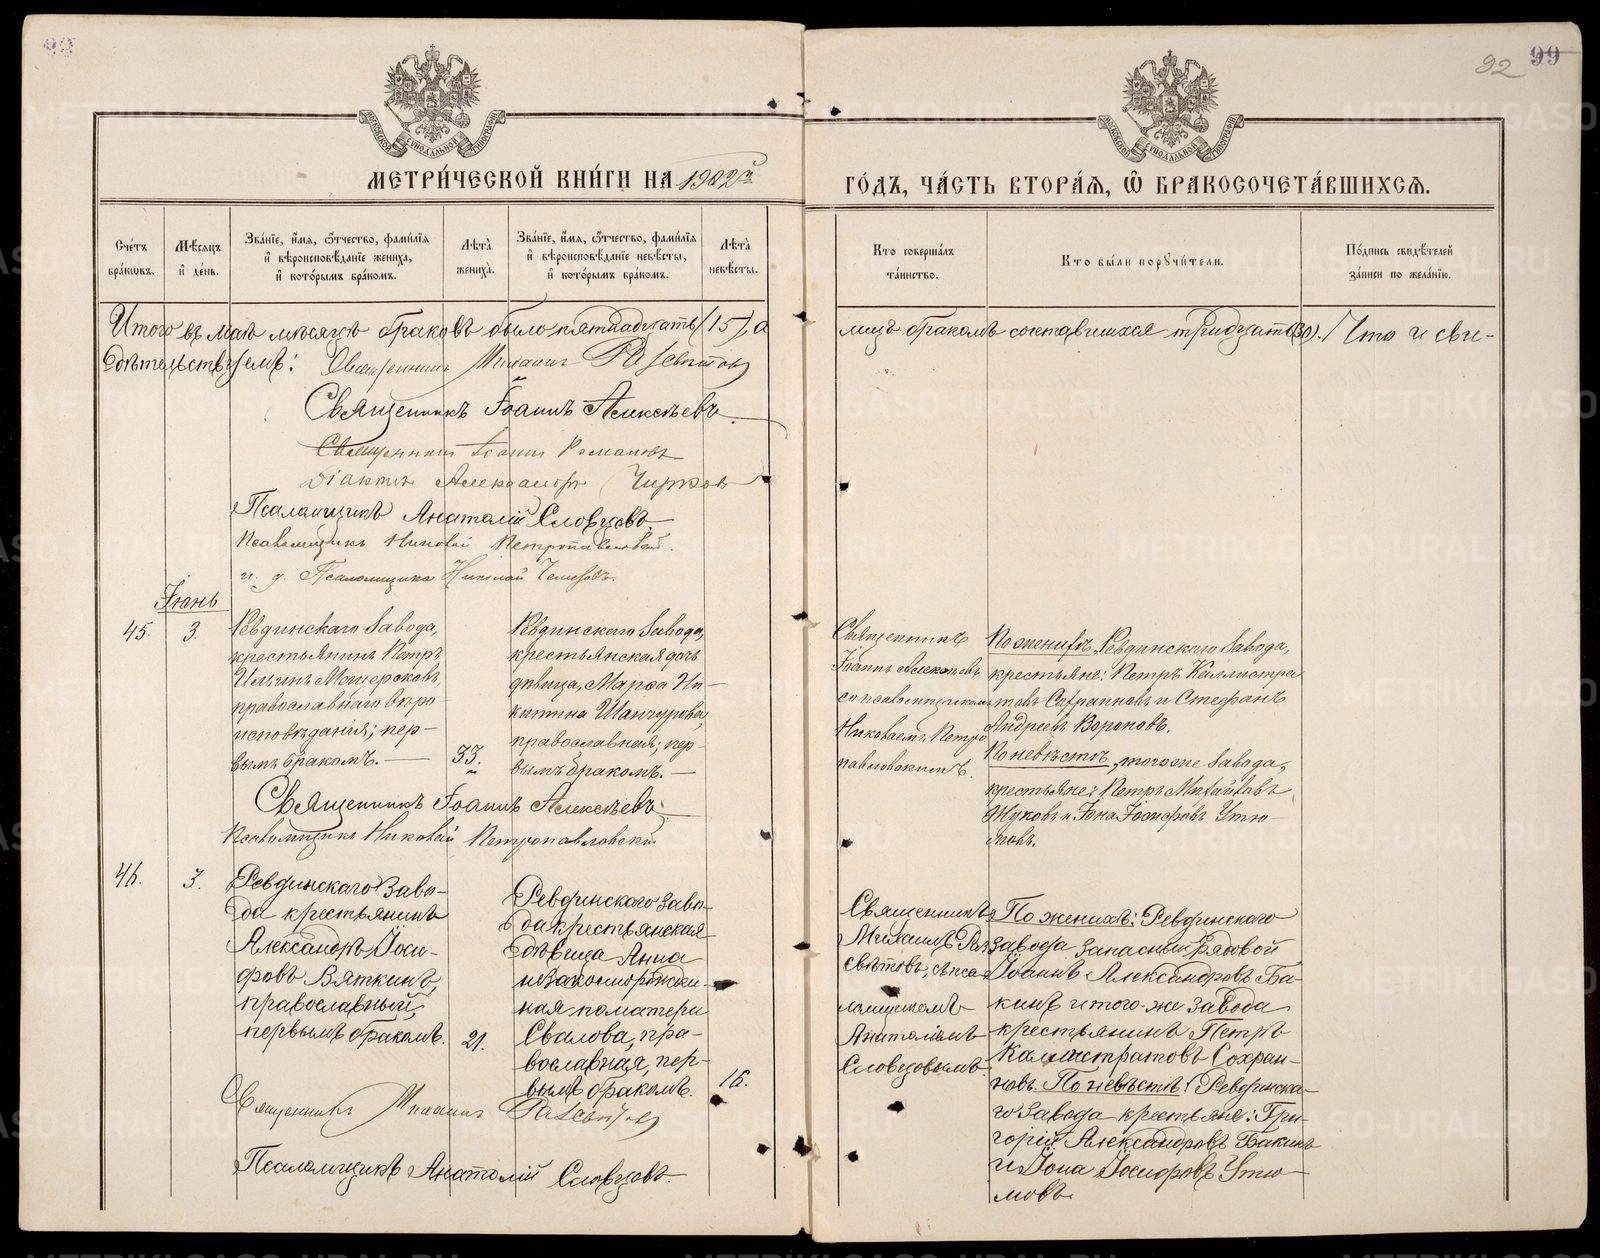 99
92 99
МЕТРИ́ЧЕСКОЙ КНИ́ГИ НА 1902й
ГО́ДЪ, ЧА́СТЬ ВТОРА́Я, Ѡ БРАКОСОЧЕТА́ВШИХСЯ.
Сче́тъ бра́кѡвъ.
Мѣ́сяцъ и́ де́нь.
Зва́нїе, и́мя, ѻ́тчество, фами́лїя и́ вѣроисповѣ́данїе жениха̀, и́ кото́рымъ бра́комъ.
Лѣ́та̀ жениха̀.
Зва́нїе, и́мя, ѻ́тчество, фами́лїя и́ вѣроисповѣ́данїе невѣ́сты, и́ кото́рымъ бра́комъ.
Лѣ́та̀ невѣ́сты.
Кто соверша́лъ та́инство.
Кто бы́ли порꙋчи́тели.
По́дпись свидѣ́телей за́писи по жела́нїю.
Итого въ маѣ мѣсяцѣ браковъ было пятнадцать (15), а
лицъ бракомъ сочетавшихся тридцать (30). Что и сви-
дѣтельствуемъ: Священникъ Михаилъ Разсвѣтовъ
Священникъ Іоаннъ Алексѣевъ.
Священникъ Іоаннъ Романовъ
Діаконъ Александръ Чирковъ
Псаломщикъ Анатолій Словцовъ.
Псаломщикъ Николай Петропавловскій.
и. д. Псаломщика Николай
Іюнь
45. 3.
Ревдинскаго Завода,
крестьянинъ Петръ
Ильинъ Мощероковъ,
православнаго вѣро-
исповѣданія; пер-
вымъ бракомъ.
33.
Ревдинскаго Завода,
крестьянская дочь
дѣвица, Марѳа Ни-
китина Шанчурова,
православная; пер-
вымъ бракомъ.
Священникъ
Іоаннъ Алексѣевъ
со псаломщикомъ
Николаемъ Петро
павловскимъ.
По женихѣ, Ревдинскаго Завода,
крестьяне: Петръ Каллистра
товъ Сафранновъ и Стефанъ
Андреевъ Вороновъ.
По невѣстѣ, тогоже Завода,
крестьяне: Петръ Михайловъ
Жуковъ и Іона Іосифовъ Утю-
мовъ.
Священникъ Іоаннъ Алексѣевъ.
Псаломщикъ Николай Петропавловскій
46. 3.
Ревдинскаго Заво-
да крестьянинъ
Александръ Іоси-
фовъ Вяткинъ,
православный,
первымъ бракомъ.
21.
Ревдинскаго заво-
да крестьянская
дѣвица Анна
незаконнорожден-
ная по матери
Свалова, пра-
вославная, пер-
вымъ бракомъ.
16.
Священникъ
Михаилъ Раз
свѣтовъ, съ пса
ломщикомъ
Анатоліемъ
Словцовымъ.
По женихѣ: Ревдинскаго
завода запасный рядовой
Іоаннъ Александровъ Ба-
кинъ и того-же завода
крестьянинъ Петръ
Каллистратовъ Сохран-
новъ. По невѣстѣ: Ревдинска-
го завода крестьяне: Гри-
горій Александровъ Бакинъ
и Іона Іосифовъ Утю-
мовъ.
Священникъ Михаилъ Разсвѣтовъ
Псаломщикъ Анатолій Словцовъ.
METRIKI.GASO-URAL.RU